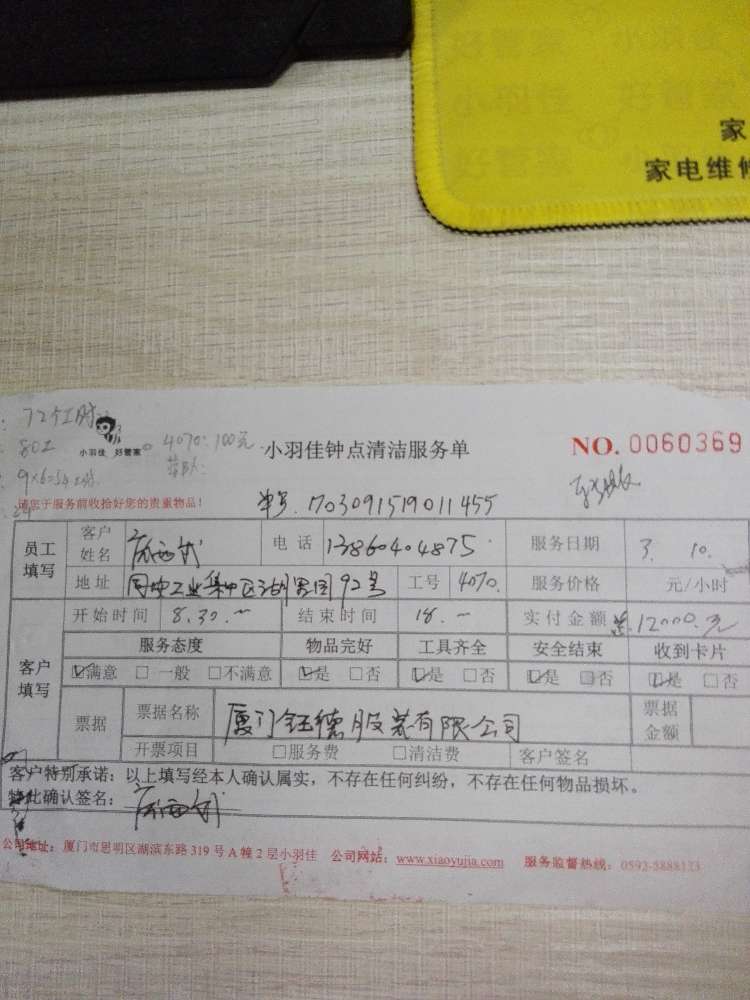 好管家 小羽佳
小羽佳 好管家
好管家
家
家电维修
72个工时
小羽佳 好管家
4070: 100元
小羽佳钟点清洁服务单
NO. 0060369
9×6=54工时
请您于服务前收拾好您的贵重物品!
单号. 170309151901 1455
员工填写
客户姓名
电话 13860404875
服务日期 3. 10.
地址 同安工业集中区湖里园92号
工号 4070.
服务价格 元/小时
客户填写
开始时间 8.30.
结束时间 18.
实付金额 12000.元
服务态度 物品完好 工具齐全 安全结束 收到卡片
☑满意 □一般 □不满意 ☑是 □否 ☑是 □否 ☑是 □否 ☑是 □否
票据
票据名称 厦门钰德服装有限公司
票据金额
开票项目 □服务费 □清洁费 客户签名
客户特别承诺:以上填写经本人确认属实,不存在任何纠纷,不存在任何物品损坏。
特此确认签名:
公司地址:厦门市思明区湖滨东路319号A幢2层小羽佳 公司网站:www.xiaoyujia.com 服务监督热线:0592-5888133